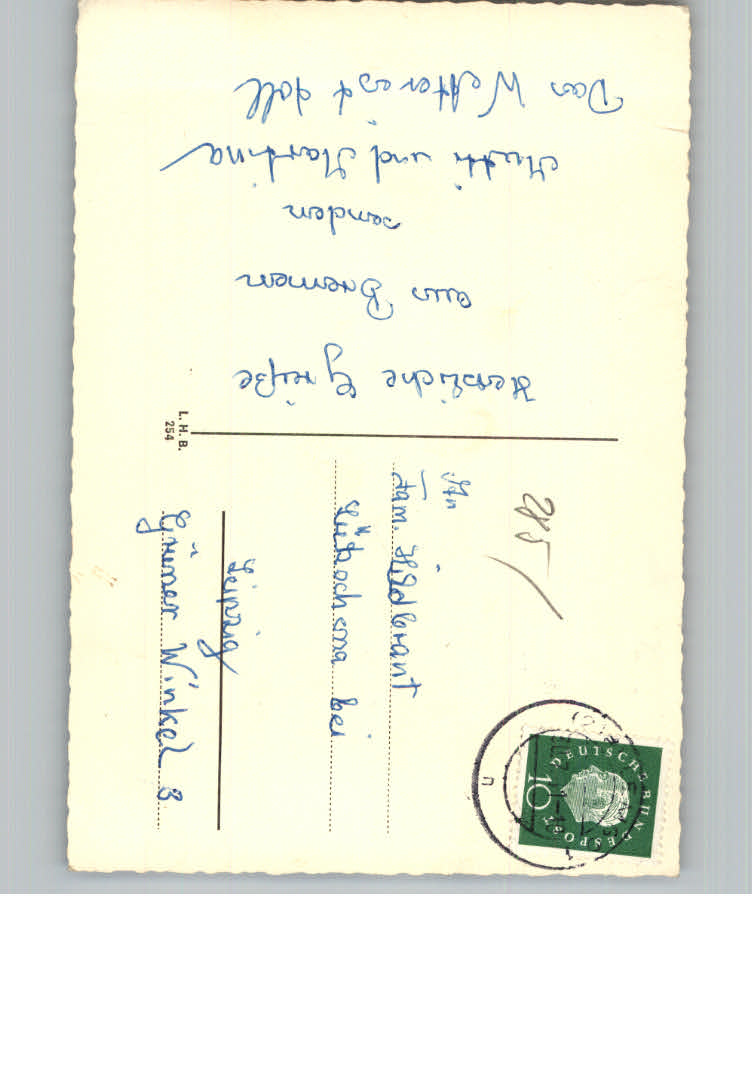 Herzliche Grüße
aus Bremen
senden
Mutti und Martina
Das Wetter ist doll
L. H. B.
254
285
An
Fam. Hildebrant
Lützschena bei
Leipzig
Grüner Winkel 3
DEUTSCHE BUNDESPOST
10